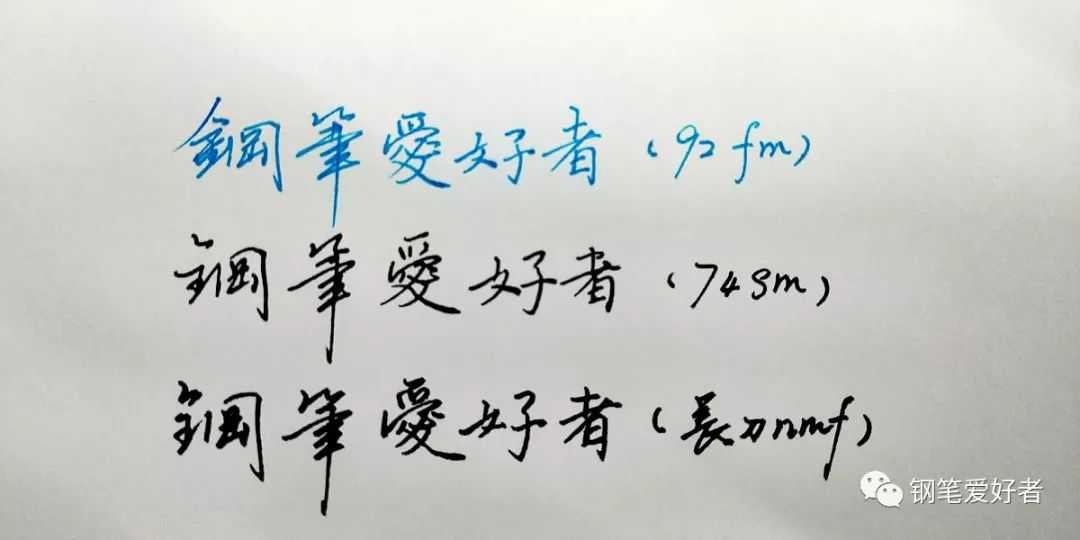 鋼筆愛好者（92 fm）
鋼筆愛好者（74 sm）
鋼筆愛好者（長刀nmf）
钢笔爱好者